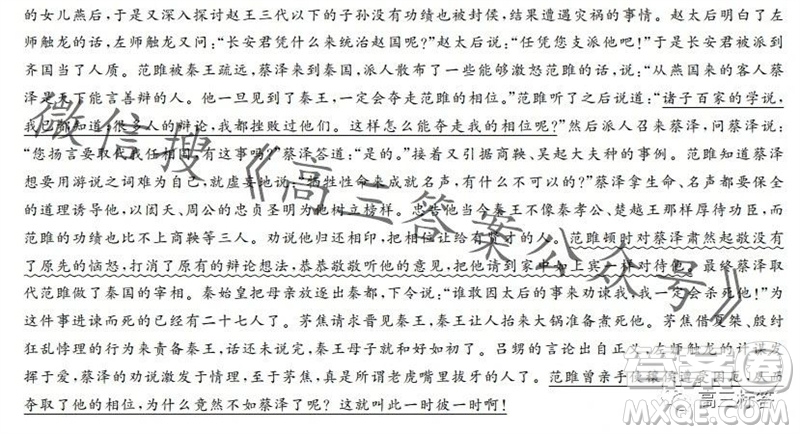 的女儿燕后，于是又深入探讨赵王三代以下的子孙没有功绩也被封侯，结果遭遇灾祸的事情。赵太后明白了左
师触龙的话，左师触龙又问：“长安君凭什么来统治赵国呢？”赵太后说：“任凭您支派他吧！”于是长安君被派到
齐国当了人质。范雎被秦王疏远，蔡泽来到秦国，派人散布了一些能够激怒范雎的话，说：“从燕国来的客人蔡
泽是天下能言善辩的人。他一旦见到了秦王，一定会夺走范雎的相位。”范雎听了之后说道：“诸子百家的学说，
我都知道；很多人的辩论，我都挫败过他们。这样怎么能夺走我的相位呢？”然后派人召来蔡泽，问蔡泽说：
“您扬言要取代我任相国，有这事吗？”蔡泽答道：“是的。”接着又引据商鞅、吴起大夫种的事例。范雎知道蔡泽
想要用游说之词难为自己，就虚妄地说：“牺牲性命来成就名声，有什么不可以的？”蔡泽拿生命、名声都要保全
的道理诱导他，以闳夭、周公的忠贞圣明为他树立榜样。忠告他当今秦王不像秦孝公、楚越王那样厚待功臣，而
范雎的功绩也比不上商鞅等三人。劝说他归还相印，把相位让给有贤才的人。范雎顿时对蔡泽肃然起敬，没
有了原先的恼怒，打消了原有的辩论想法，恭恭敬敬听他的意见，把他请到家中如上宾一样对待他。最终蔡泽取
代范雎做了秦国的宰相。秦始皇把母亲放逐出秦都，下令说：“谁敢因太后的事来劝谏我，我一定会杀死他！”为
这件事进谏而死的已经有二十七人了。茅焦请求晋见秦王，秦王让人抬来大锅准备煮死他。茅焦借夏桀、殷纣
狂乱悖理的行为来责备秦王，话还未说完，秦王母子就和好如初了。吕甥的言论出自正义，左师触龙的计谋发
挥于爱，蔡泽的劝说激发于情理，至于茅焦，真是所谓老虎嘴里拔牙的人了。范雎曾亲手
夺取了他的相位，为什么竟然不如蔡泽了呢？这就叫此一时彼一时啊！
微信搜《高三答案公众号》
答案圈
MXQE.COM
高三标答